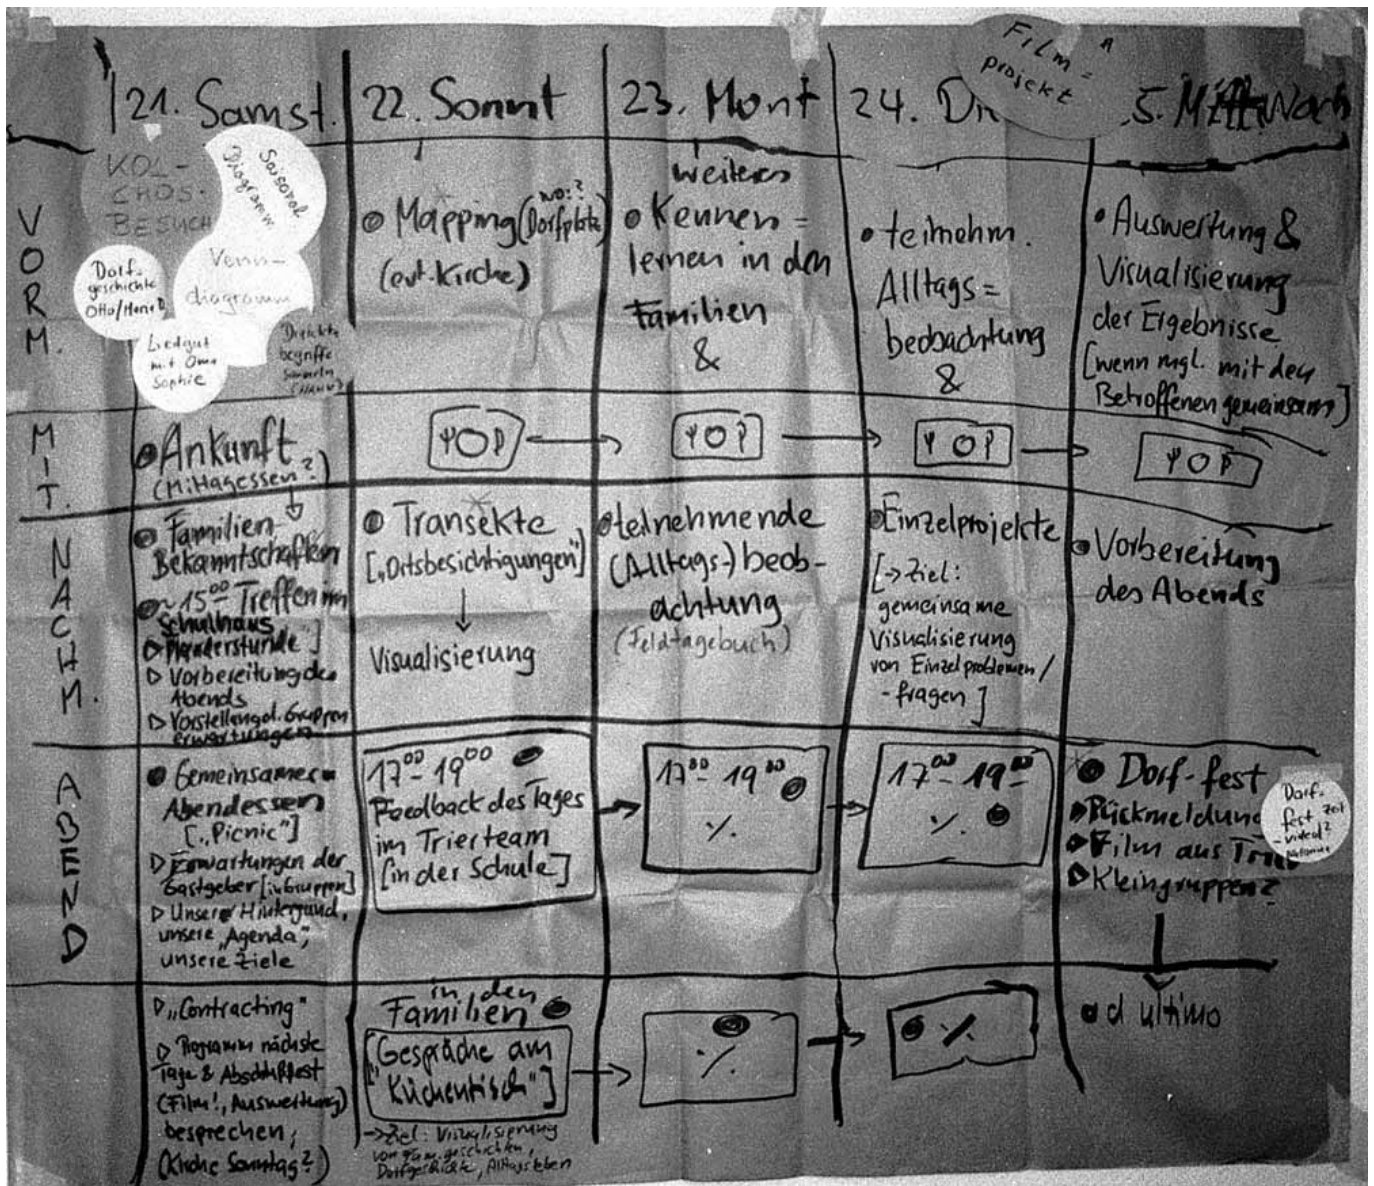 Film=
projekt
21. Samst.
22. Sonnt
23. Mont
24. Di
5. Mittwoch
VORM.
KOL-
CHOS-
BESUCH
Saisonal
Diagramm
Dorf-
geschichte
Otto/
Venn-
diagramm
Liedgut
mit Oma
Sophie
begriffe
sammeln
wo:?
Mapping (Dorfplatz)
(evt. Kirche)
weiteres
Kennen=
lernen in den
Familien
&
teilnehm.
Alltags=
beobachtung
&
Auswertung &
Visualisierung
der Ergebnisse
[wenn mgl. mit den
Betroffenen gemeinsam]
MIT.
Ankunft
(Mittagessen?)
NACHM.
Familien-
Bekanntschaften
~15⁰⁰ Treffen im
Schulhaus
▷ Plauderstunde]
▷ Vorbereitung des
Abends
▷ Vorstellung d. Gruppen
erwartungen
Transekte
[„Ortsbesichtigungen"]
Visualisierung
teilnehmende
(Alltags-) beob-
achtung
(Feldtagebuch)
Einzelprojekte
[→ Ziel:
gemeinsame
Visualisierung
von Einzelproblemen/
-fragen]
Vorbereitung
des Abends
ABEND
Gemeinsames
Abendessen
[„Picnic"]
▷ Erwartungen der
Gastgeber [in Gruppen]
▷ Unser Hintergrund,
unsere „Agenda",
unsere Ziele
17⁰⁰-19⁰⁰
Feedback des Tages
im Trierteam
[in der Schule]
17⁰⁰-19⁰⁰
·/.
17⁰⁰-19⁰⁰
·/.
Dorf-fest
▷ Rückmeldung
▷ Film aus Trier
▷ Kleingruppen?
Dorf-
fest Zeit
-video?
▷ „Contracting"
▷ Programm nächste
Tage & Abschlußfest
(Film!, Auswertung)
besprechen,
(Kirche Sonntag?)
in den
Familien
[„Gespräche am
Küchentisch"]
→ Ziel: Visualisierung
von Fam.geschichten,
Dorfgeschichte, Alltagsleben
·/.
·/.
ad ultimo